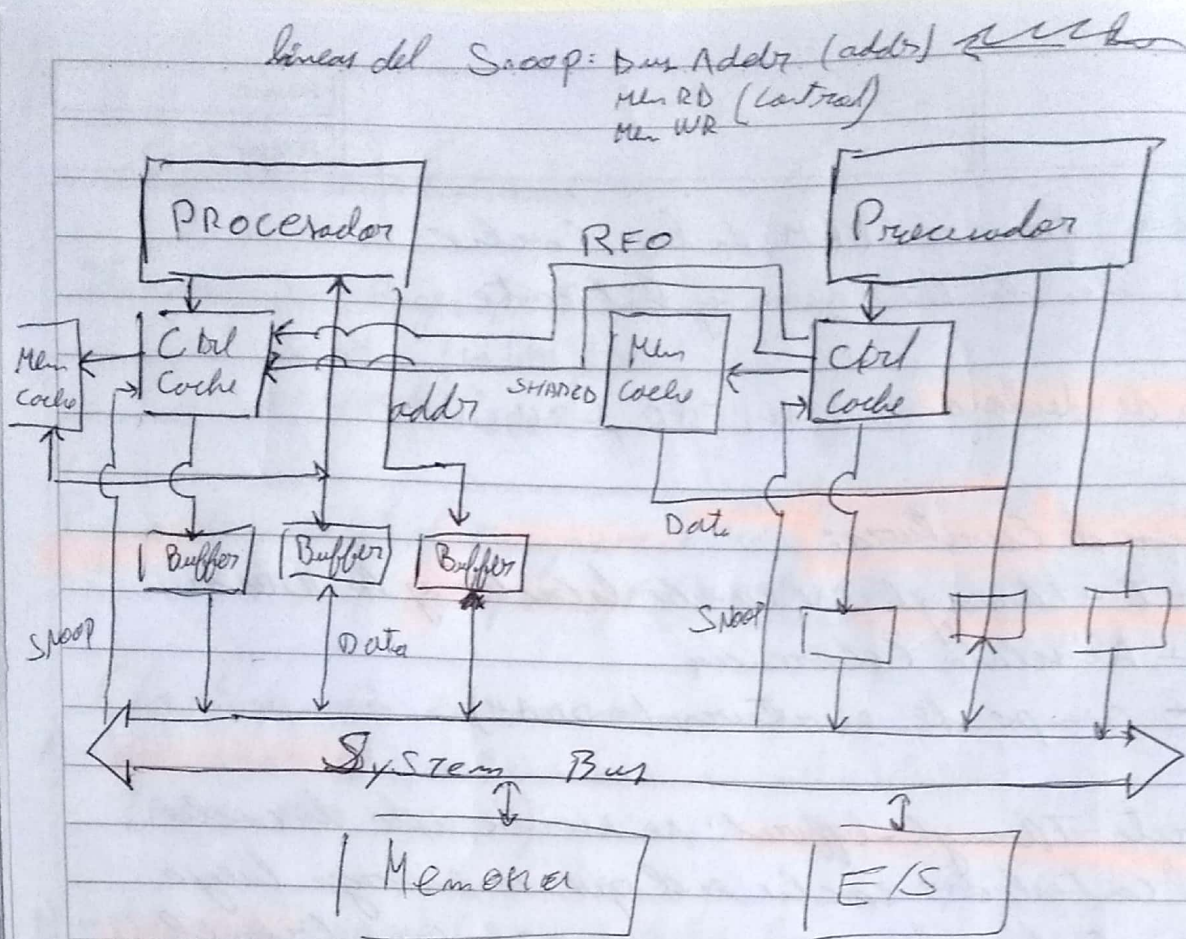 lineas del Snoop: Bus Addr (addr)
Mem RD (Control)
Mem WR
Procesador
Procesador
RFO
Mem
Cache
Ctrl
Cache
SHARED
Mem
Cache
Ctrl
Cache
addr
Data
Buffer
Buffer
Buffer
SNOOP
Data
SNOOP
System Bus
Memoria
E/S